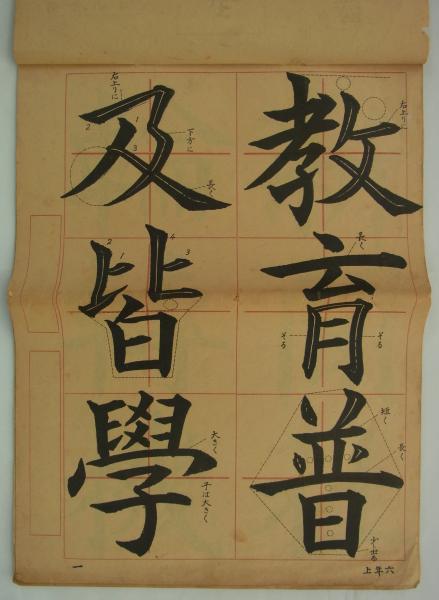 教育普
右上りに
長く
そる
そる
短く
長く
少し出る
及皆學
右上りに
1
2
3
下方に
長く
2
1
4
3
大きく
子は大きく
六年上
一